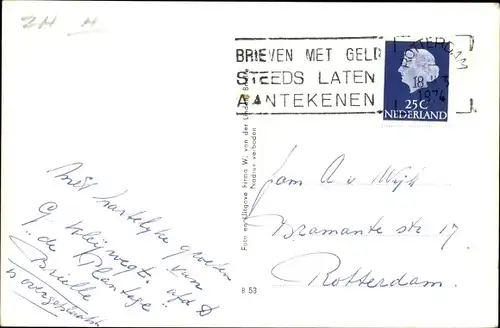 ZH H
BRIEVEN MET GELD
STEEDS LATEN
AANTEKENEN
ROTTERDAM
18
1974
25C
NEDERLAND
Foto en Uitgave Firma W. van der Linde, Brielle
Nadruk verboden
Met hartelijke groeten
van
G Kleijwegt. afd D
"de Plantage"
Brielle
is overgeplaatst
Fam A v Wijk
Bramante str 17
Rotterdam.
B 53